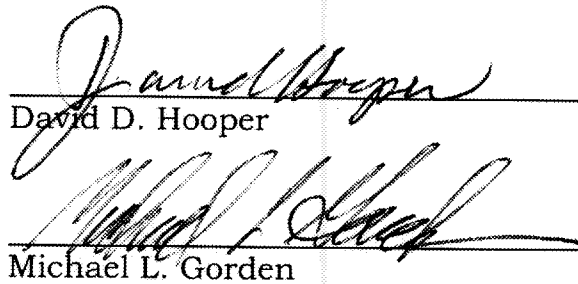 David Hooper
David D. Hooper
Michael L Gorden
Michael L. Gorden